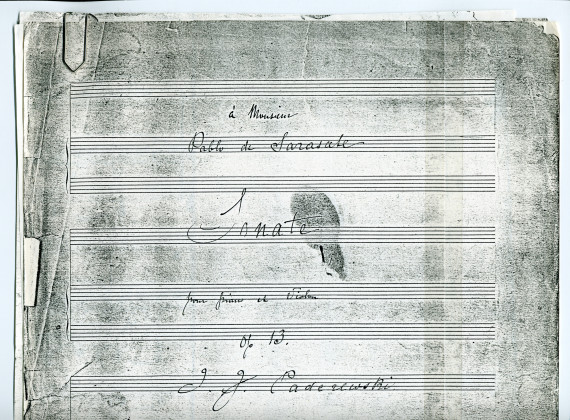 à Monsieur
Pablo de Sarasate
Sonate
pour piano et Violon
Op 13.
I. J. Paderewski